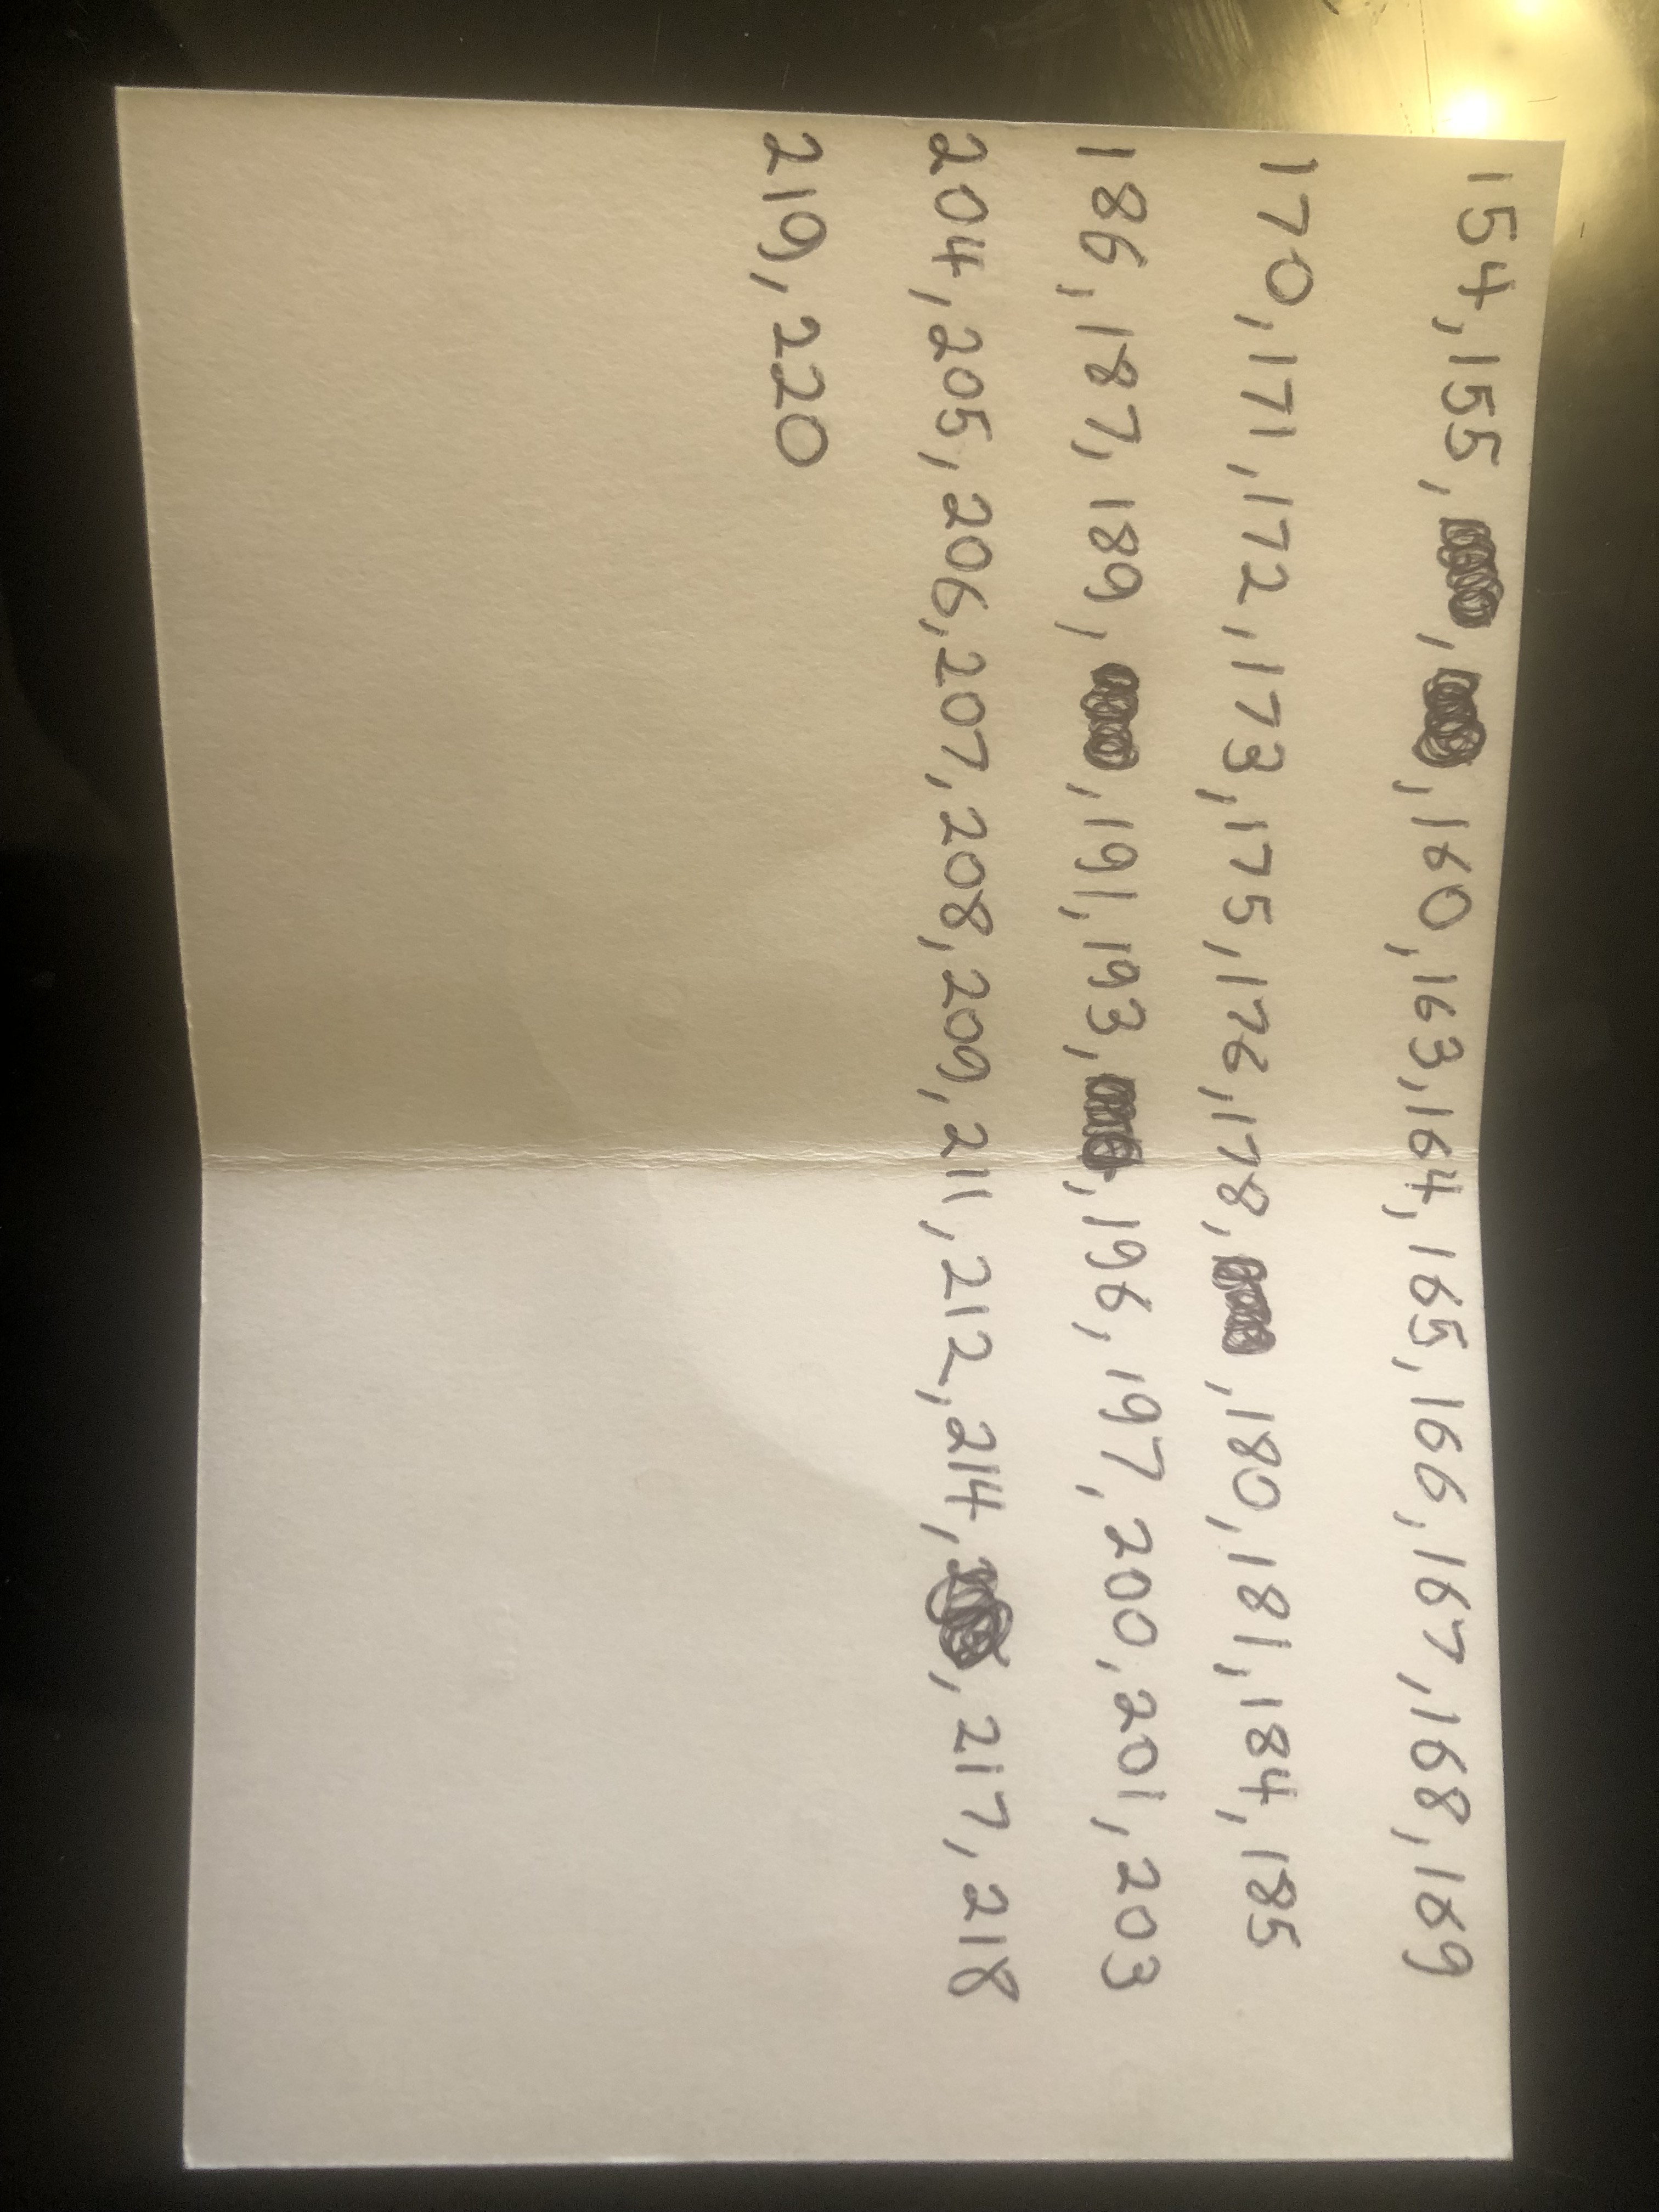 154, 155, , , 160, 163, 164, 165, 166, 167, 168, 169
170, 171, 172, 173, 175, 176, 178, , 180, 181, 184, 185
186, 187, 189, , 191, 193, , 196, 197, 200, 201, 203
204, 205, 206, 207, 208, 209, 211, 212, 214, , 217, 218
219, 220